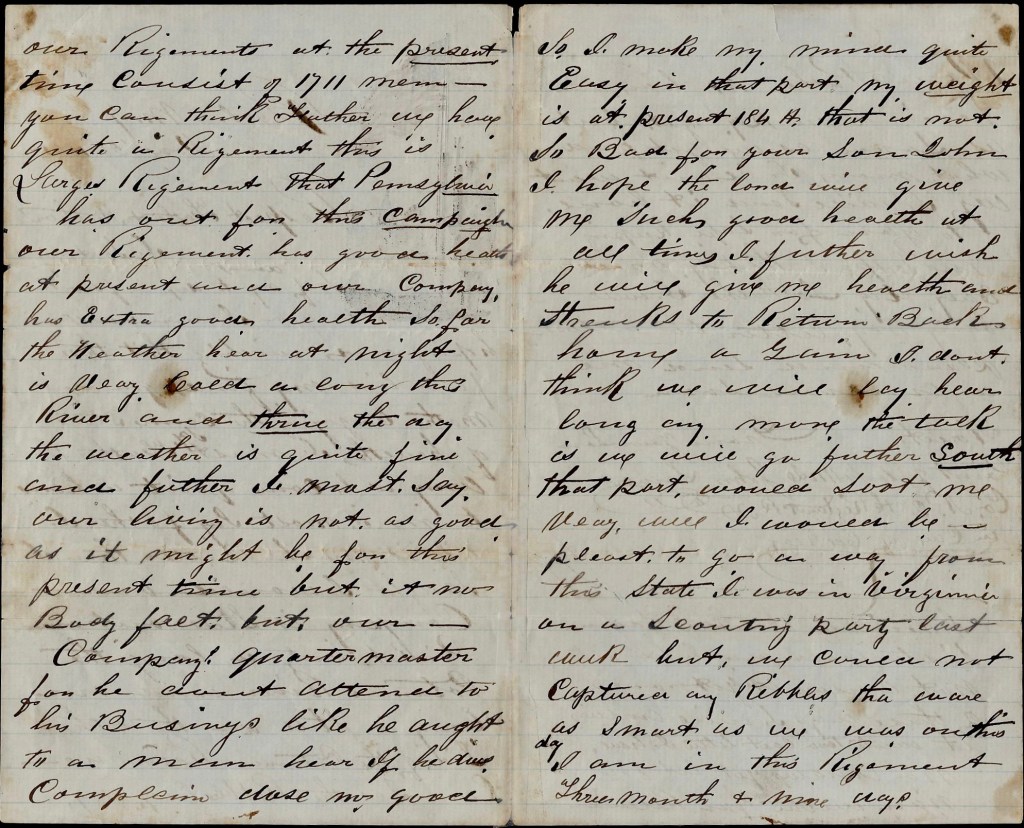 our Rigements at the present
time Consist of 1711 mem —
you can think Father we have
quite a Rigement this is
Larges Rigement that Pensylvia
has out for this Campaign
our Rigement has good
at present and our Company,
has Extra good health So far
the Weather hear at night
is veay Cold a long this
River and the day
the weather is quite fine
and futher I must Say,
our living is not as good
as it might be for this
present time but it no
Body falt, but, our —
Company's quartermaster
for he dont attend to
his Busings like he aught
to a man hear If he
Complain dose no good
So I make my mind quite
Easy in that part my weight
is at present 184 . that is not.
So Bad for your Son John
I hope the lord will give
me Such good health at
all times I futher wish
he will give me health and
Strenks to Return Back
home a Gain I dont
think we will lay hear
long any more the talk
is we will go futher South
that part, would Soot me
veay, well I would be —
pleast to go a way from
this State I was in Virginnia
on a Scouting party last
week but, we could not
Captured any Ribbles tha ware
as Smart as we was on this
day
I am in this Rigement
Three month & nine days